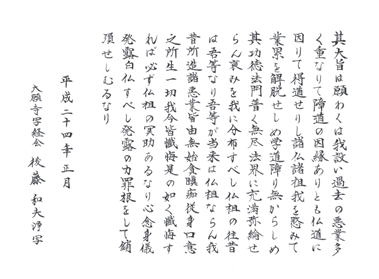 其大旨は願わくは我設い過去の悪業多
く重なりて障道の因縁ありとも仏道に
因りて得道せりし諸仏諸祖我を愍みて
業累を解脱せしめ学道障り無からしめ
其功徳法門普く無尽法界に充満弥綸せ
らん哀みを我に分布すべし仏祖の往昔
は吾等なり吾等が当来は仏祖ならん我
昔所造諸悪業皆由無始貪瞋痴従身口意
之所生一切我今皆懺悔是の如く懺悔す
れば必ず仏祖の冥助あるなり心念身儀
発露白仏すべし発露の力罪根をして銷
殞せしむるなり
平成二十四年正月
大願寺写経会 後藤和夫浄写